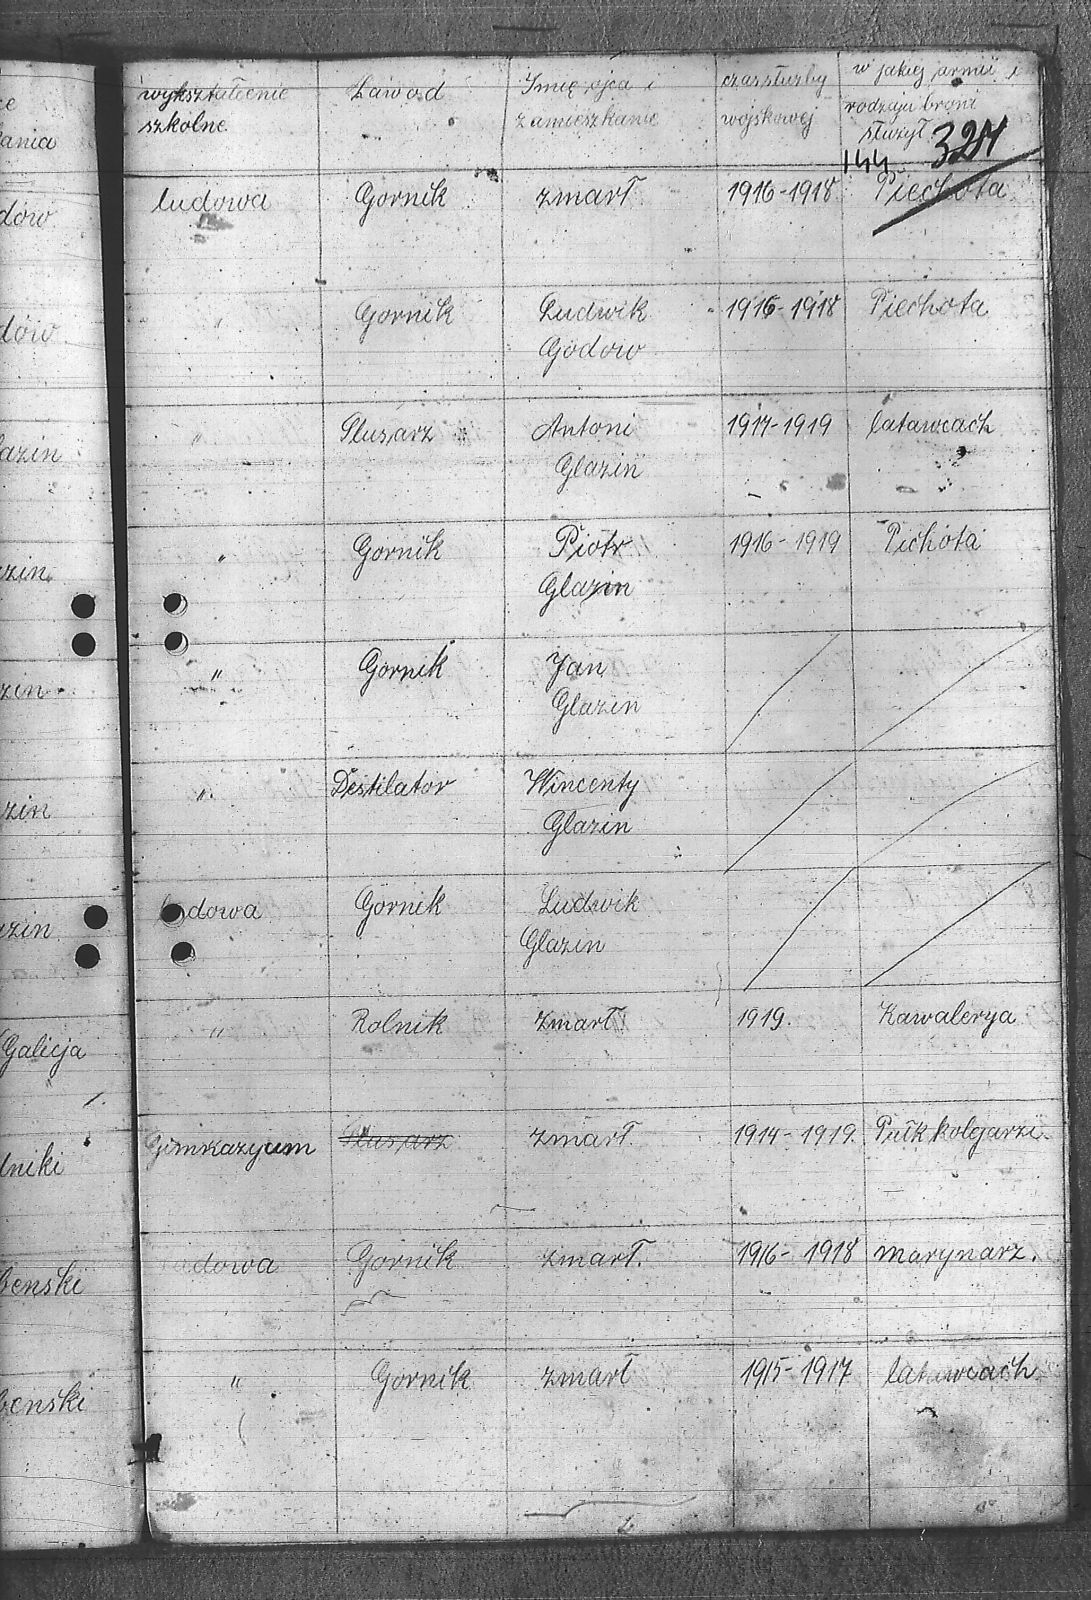 wykształcenie szkolne
Zawod
Imię ojca i zamieszkanie
czas służby wojskowej
w jakiej armii i rodzaju broni służył
144
324
ludowa Gornik zmarł 1916-1918 Piechota
dow
" Gornik Ludwik 1916-1918 Piechota
Godow
dów
" Slusarz Antoni 1917-1919 latawcach
Glazin
azin
" Gornik Piotr 1916-1919 Pichota
Glazin
zin
" Gornik Jan
Glazin
zin
" Destilator Wincenty
Glazin
zin
ludowa Gornik Ludwik
Glazin
zin
" Rolnik zmarł 1919. Kawalerya
Galicja
Gimnazyum Slusarz zmarł. 1914-1919. Pułk kolejarzi.
lniki
ludowa Gornik zmarł. 1916-1918 marynarz.
benski
" Gornik zmarł 1915-1917 latawcach
benski